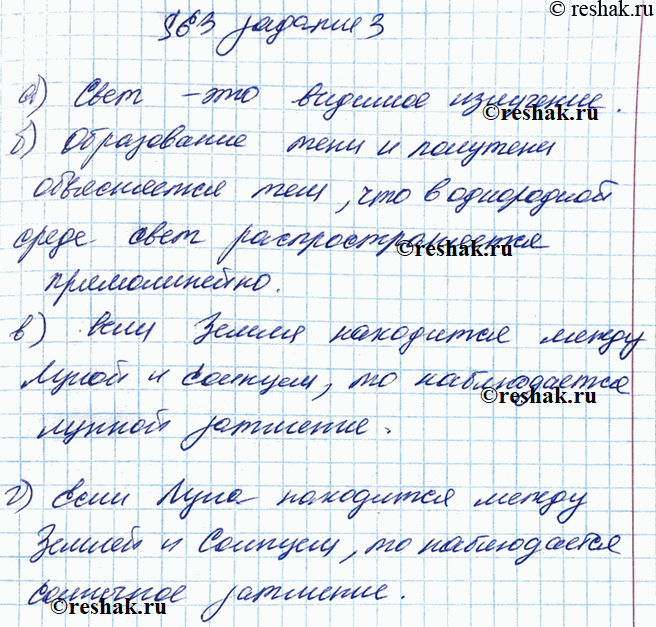 © reshak.ru
§63 задание 3
а) Свет – это видимое излучение.
© reshak.ru
б) Образование тени и полутени
объясняется тем, что в однородной
среде свет распространяется
© reshak.ru
прямолинейно.
в) Если Земля находится между
Луной и Солнцем, то наблюдается
© reshak.ru
лунной затмение.
г) Если Луна находится между
Землей и Солнцем, то наблюдается
солнечное затмение.
© reshak.ru